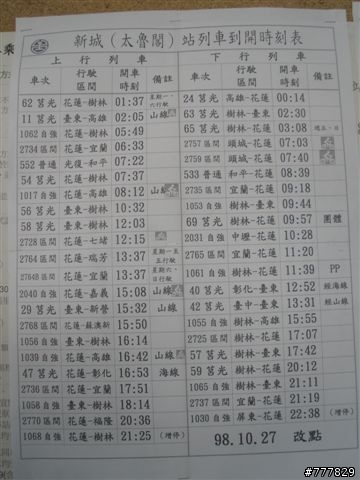 新城(太魯閣)站列車到開時刻表
上行列車
車次 行駛區間 開車時刻 備註
62 莒光 花蓮-樹林 01:37 星期一、六行駛
11 莒光 臺東-高雄 02:05 山線
1062 自強 花蓮-樹林 05:49
2734 區間 花蓮-宜蘭 06:33
552 普通 光復-和平 07:22
54 莒光 花蓮-樹林 07:37
1017 自強 花蓮-高雄 08:12 山線
56 莒光 臺東-樹林 10:32
58 莒光 臺東-樹林 10:32
2728 區間 花蓮-七堵 12:15
2764 區間 花蓮-瑞芳 13:37 星期一至五行駛
2764B 區間 花蓮-宜蘭 13:37 星期六、日行駛
2040 自強 花蓮-嘉義 15:08 山線
29 莒光 臺東-新營 15:32 山線
2768 區間 花蓮-蘇澳新 15:50
1056 自強 臺東-樹林 16:14
1039 自強 花蓮-高雄 16:42 山線
47 莒光 花蓮-彰化 16:53 海線
2736 區間 花蓮-宜蘭 17:51
1058 自強 臺東-樹林 18:14
2770 區間 花蓮-福隆 20:36
1068 自強 花蓮-樹林 21:25 (增停)
下行列車
車次 行駛區間 開車時刻 備註
24 莒光 高雄-花蓮 00:14
63 莒光 樹林-臺東 02:30
65 莒光 樹林-花蓮 03:08
2757 區間 頭城-花蓮 07:03
2759 區間 頭城-花蓮 07:40
533 普通 和平-花蓮 08:39
2735 區間 宜蘭-花蓮 09:18
1053 自強 樹林-花蓮 09:44
69 莒光 樹林-花蓮 09:57 團體
2031 自強 中壢-花蓮 10:28
2765 區間 宜蘭-花蓮 11:20
1061 自強 樹林-花蓮 11:39 PP
40 莒光 彰化-臺東 12:52 經海線
42 莒光 臺中-臺東 13:31 經山線
1055 自強 樹林-高雄 15:55
2725 區間 樹林-花蓮 17:07
57 莒光 樹林-臺東 17:42
59 莒光 樹林-花蓮 20:12
1065 自強 樹林-花蓮 21:11
2737 區間 宜蘭-花蓮 21:19
1030 自強 屏東-花蓮 22:38 (增停)
98.10.27 改點
#777829